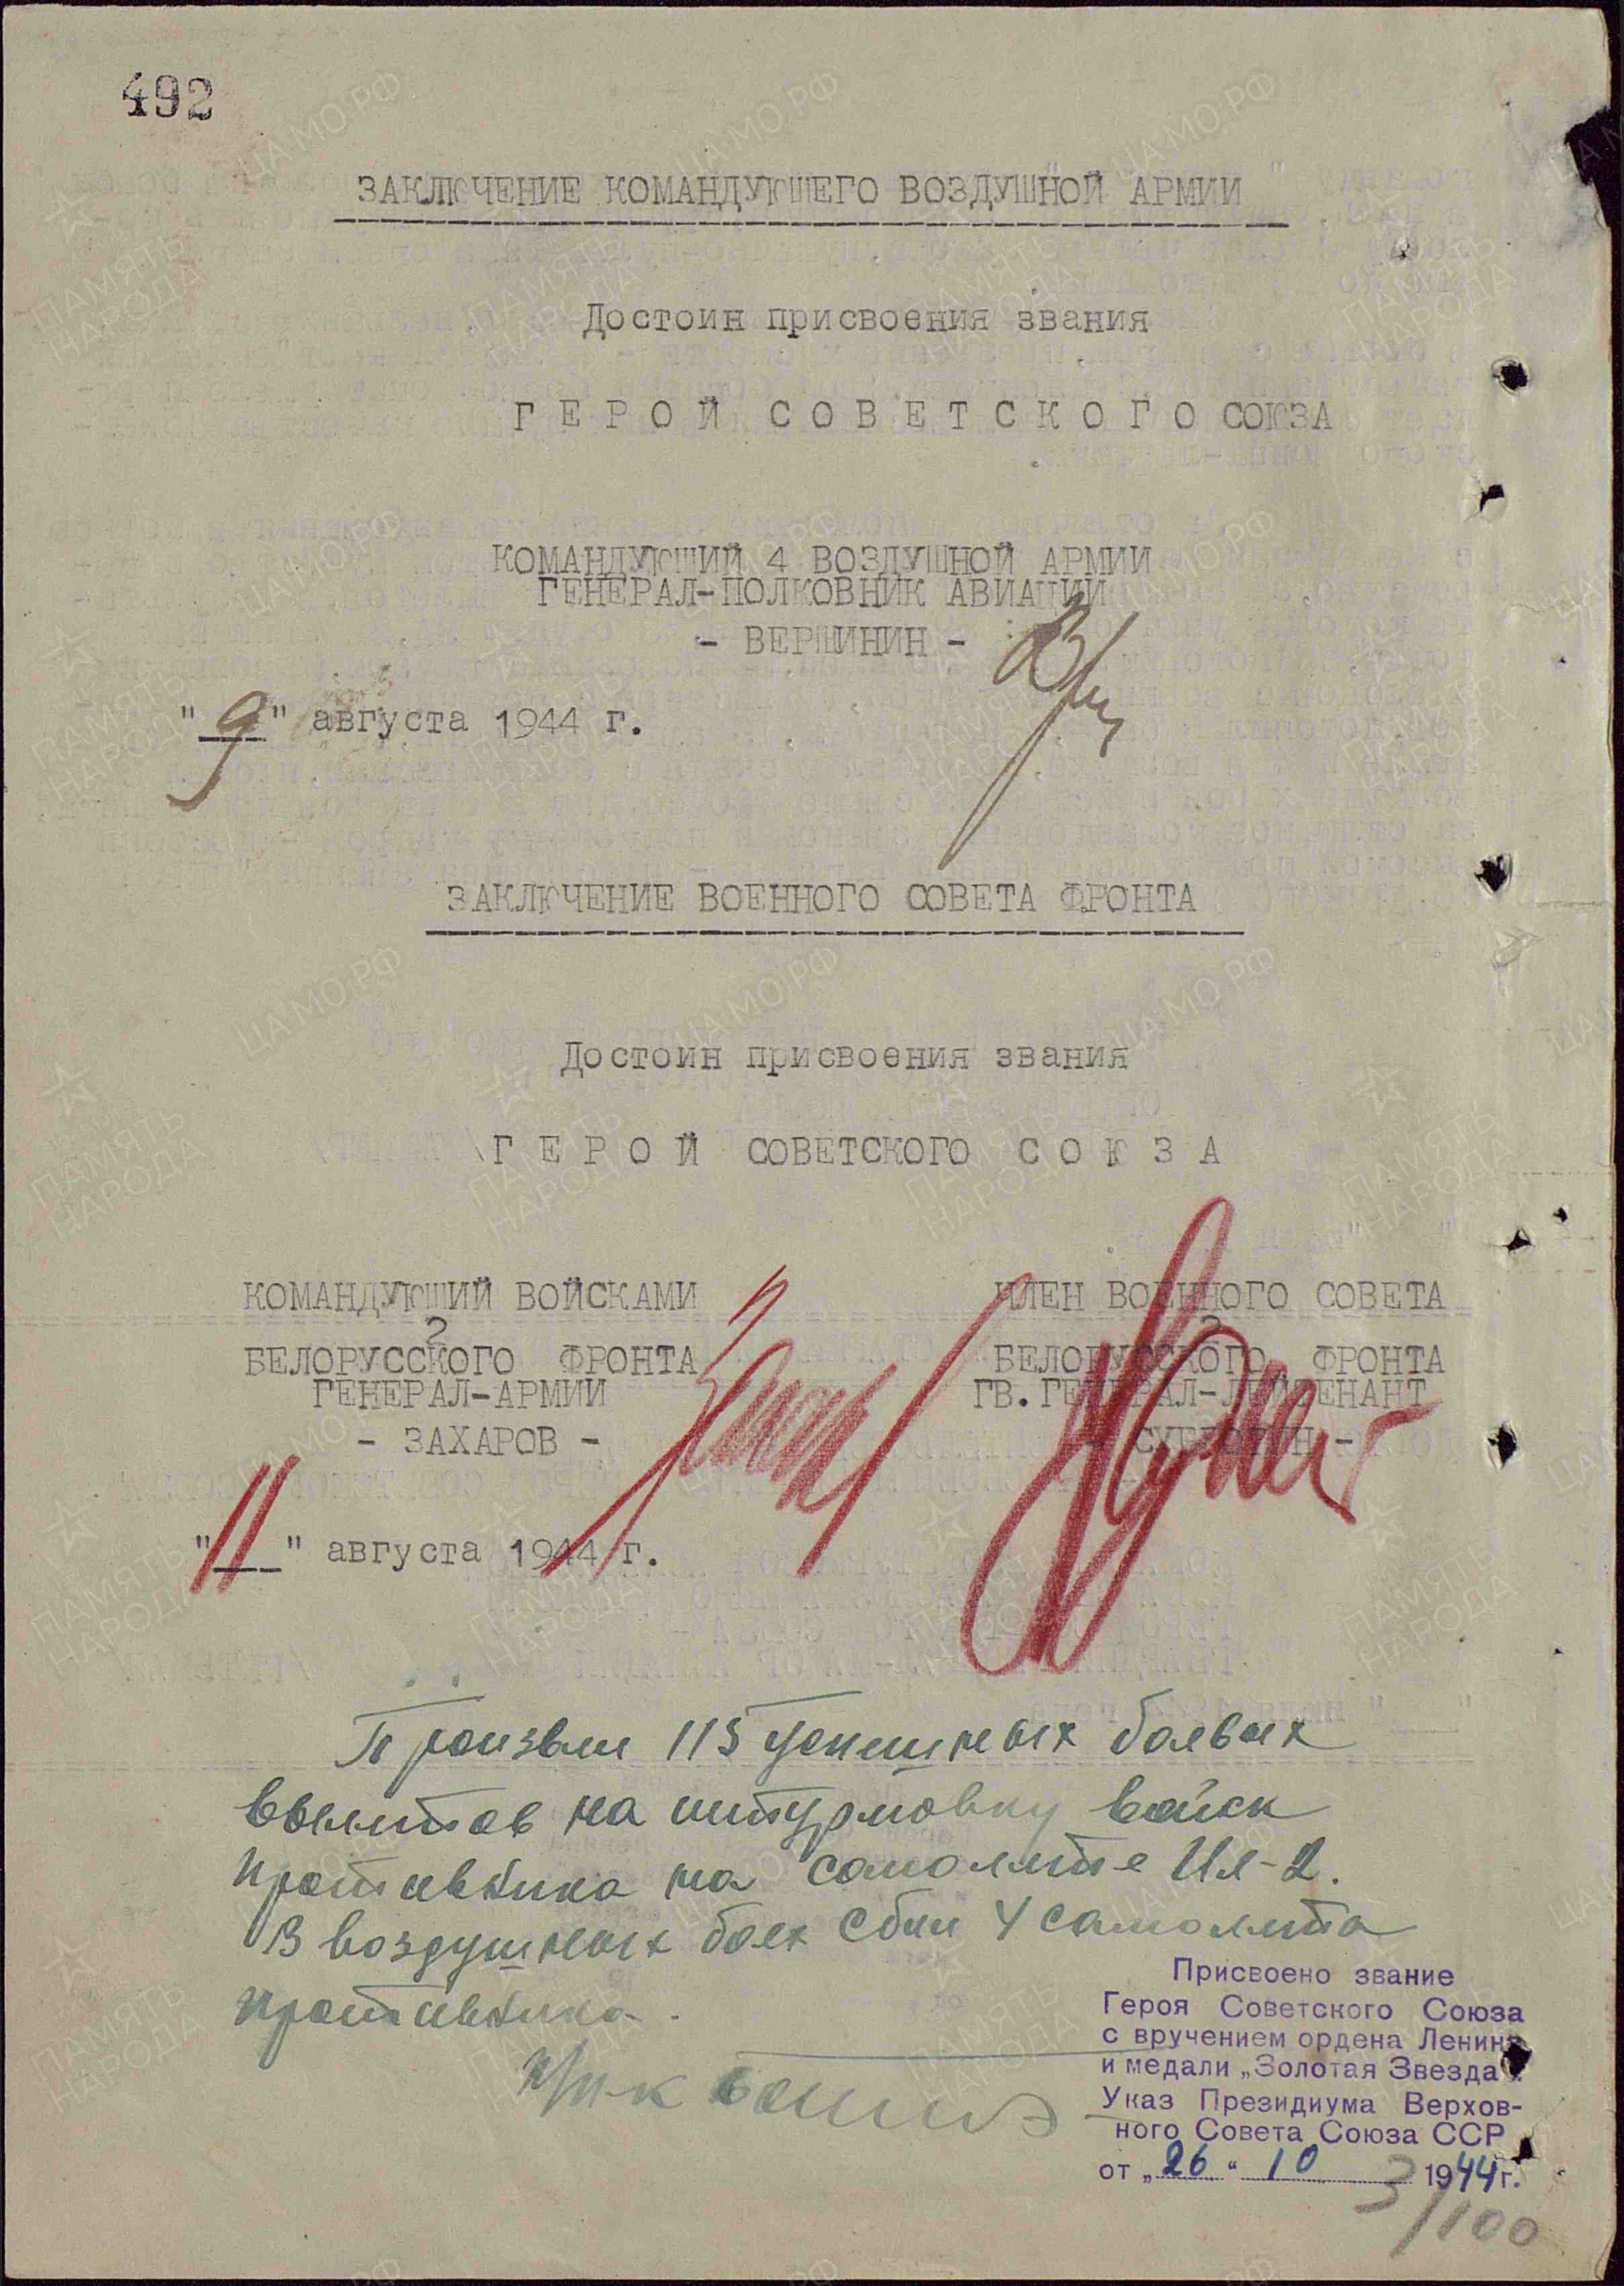 492
ЗАКЛЮЧЕНИЕ КОМАНДУЮЩЕГО ВОЗДУШНОЙ АРМИИ
Достоин присвоения звания
Г Е Р О Й С О В Е Т С К О Г О СОЮЗА
КОМАНДУЮЩИЙ 4 ВОЗДУШНОЙ АРМИИ
ГЕНЕРАЛ-ПОЛКОВНИК АВИАЦИИ
- ВЕРШИНИН -
"9" августа 1944 г.
ЗАКЛЮЧЕНИЕ ВОЕННОГО СОВЕТА ФРОНТА
Достоин присвоения звания
Г Е Р О Й СОВЕТСКОГО С О Ю З А
КОМАНДУЮЩИЙ ВОЙСКАМИ
2
БЕЛОРУССКОГО ФРОНТА
ГЕНЕРАЛ-АРМИИ
- ЗАХАРОВ -
ЧЛЕН ВОЕННОГО СОВЕТА
2
БЕЛОРУССКОГО ФРОНТА
ГВ. ГЕНЕРАЛ-ЛЕЙТЕНАНТ
- СУББОТИН -
"11" августа 1944 г.
Произвел 115 успешных боевых
вылетов на штурмовку войск
противника на самолете Ил-2.
В воздушных боях сбил 4 самолета
противника.
Присвоено звание
Героя Советского Союза
с вручением ордена Ленина
и медали „Золотая Звезда".
Указ Президиума Верхов-
ного Совета Союза ССР
от „26" 10 1944г.
3/100
ПАМЯТЬ
НАРОДА
ЦАМО.РФ